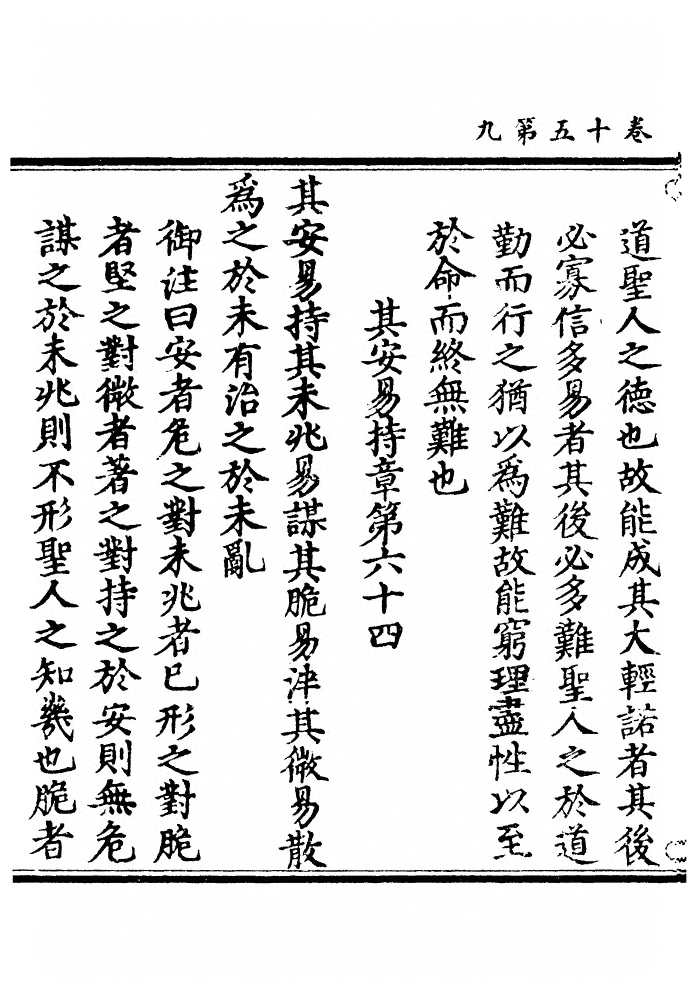 卷十五第九
道聖人之德也故能成其大輕諾者其後
必寡信多易者其後必多難聖人之於道
勤而行之猶以為難故能窮理盡性以至
於命而終無難也
其安易持章第六十四
其安易持其未兆易謀其脆易泮其微易散
為之於未有治之於未亂
御注曰安者危之對未兆者已形之對脆
者堅之對微者著之對持之於安則無危
謀之於未兆則不形聖人之知幾也脆者